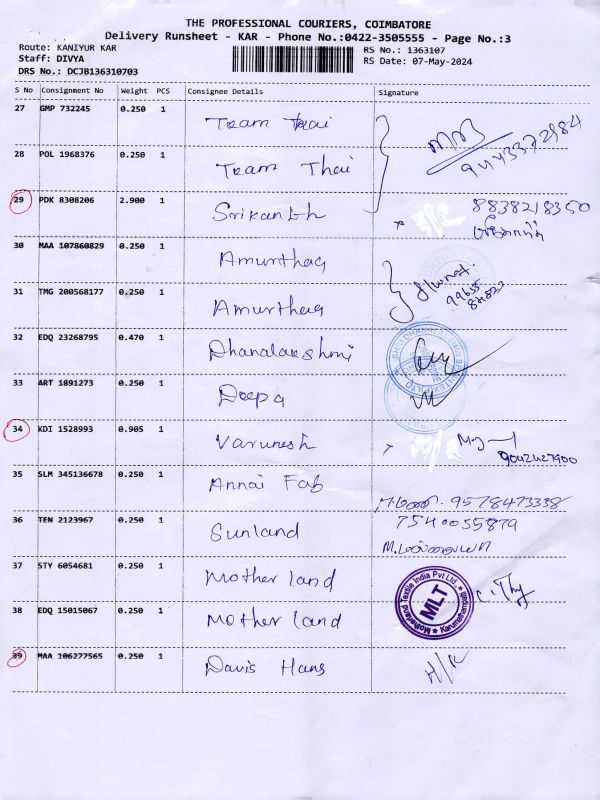 THE PROFESSIONAL COURIERS, COIMBATORE
Delivery Runsheet - KAR - Phone No.:0422-3505555 - Page No.:3
Route: KANIYUR KAR
Staff: DIVYA
DRS No.: DCJB136310703
RS No.: 1363107
RS Date: 07-May-2024
S No Consignment No Weight PCS Consignee Details Signature
27 GMP 732245 0.250 1 Team Thai
28 POL 1968376 0.250 1 Team Thai
29 PDK 8308206 2.900 1 Srikanth 8838218350
30 MAA 107860829 0.250 1 Amurthaa
31 TMG 200568177 0.250 1 Amurthaa
32 EDQ 23268795 0.470 1 Dhanalakshmi
33 ART 1891273 0.250 1 Deepa
34 KDI 1528993 0.905 1 Varunesh 9042427900
35 SLM 345136678 0.250 1 Annai Fab 9578473338
36 TEN 2123967 0.250 1 Sunland 7540055879
37 STY 6054681 0.250 1 Mother land
38 EDQ 15015067 0.250 1 Mother land
Motherland Textile India Pvt Ltd.
MLT
39 MAA 106277565 0.250 1 Davis Hans